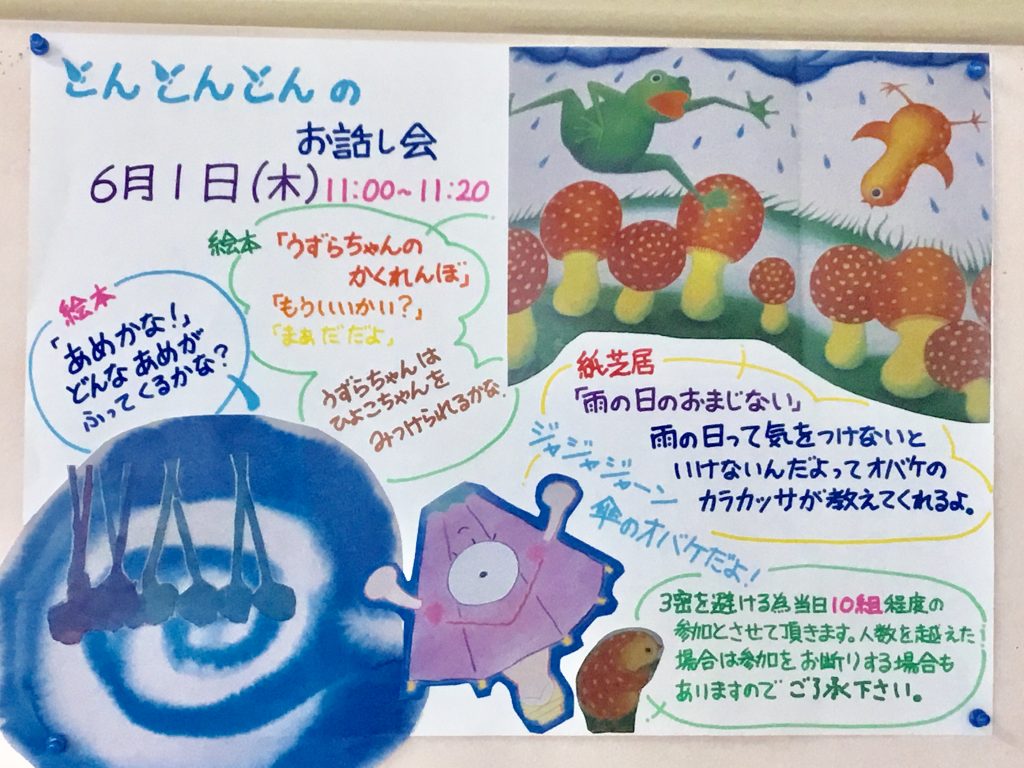 とんとんとんの
お話し会
6月1日(木)11:00~11:20
絵本「うずらちゃんの
かくれんぼ」
「もういいかい?」
「まぁだだよ」
うずらちゃんは
ひよこちゃんを
みつけられるかな?
絵本
「あめかな!」
どんなあめが
ふってくるかな?
紙芝居
「雨の日のおまじない」
雨の日って気をつけないと
いけないんだよってオバケの
カラカッサが教えてくれるよ。
ジャジャジャーン
傘のオバケだよ!
3密を避ける為当日10組程度の
参加とさせて頂きます。人数を越えた
場合は参加をお断りする場合も
ありますのでご了承下さい。